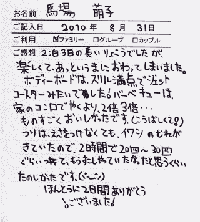 お名前 馬場 萌子
ご記入日 2010年 8月 31日
ご利用 □ファミリー □グループ □カップル
ご感想 2泊3日の長いりょこうでしたが
楽しくて、あっというまにおわってしまいました。
ボディーボードは、スリル満点でジェット
コースターみたいで楽しかった。バーベキューは、
家のコンロでやくより、2倍3倍…
ものすごくおいしかったです。(こうばしくて)
つりは、えさつけなくても、イワシのむれが
きていたので、2時間で20匹～30匹
ぐらいつれて、もう少しやっていたかったなと思うくらい
たのしかったです。
ほんとうに2日間ありがとう
ございました!